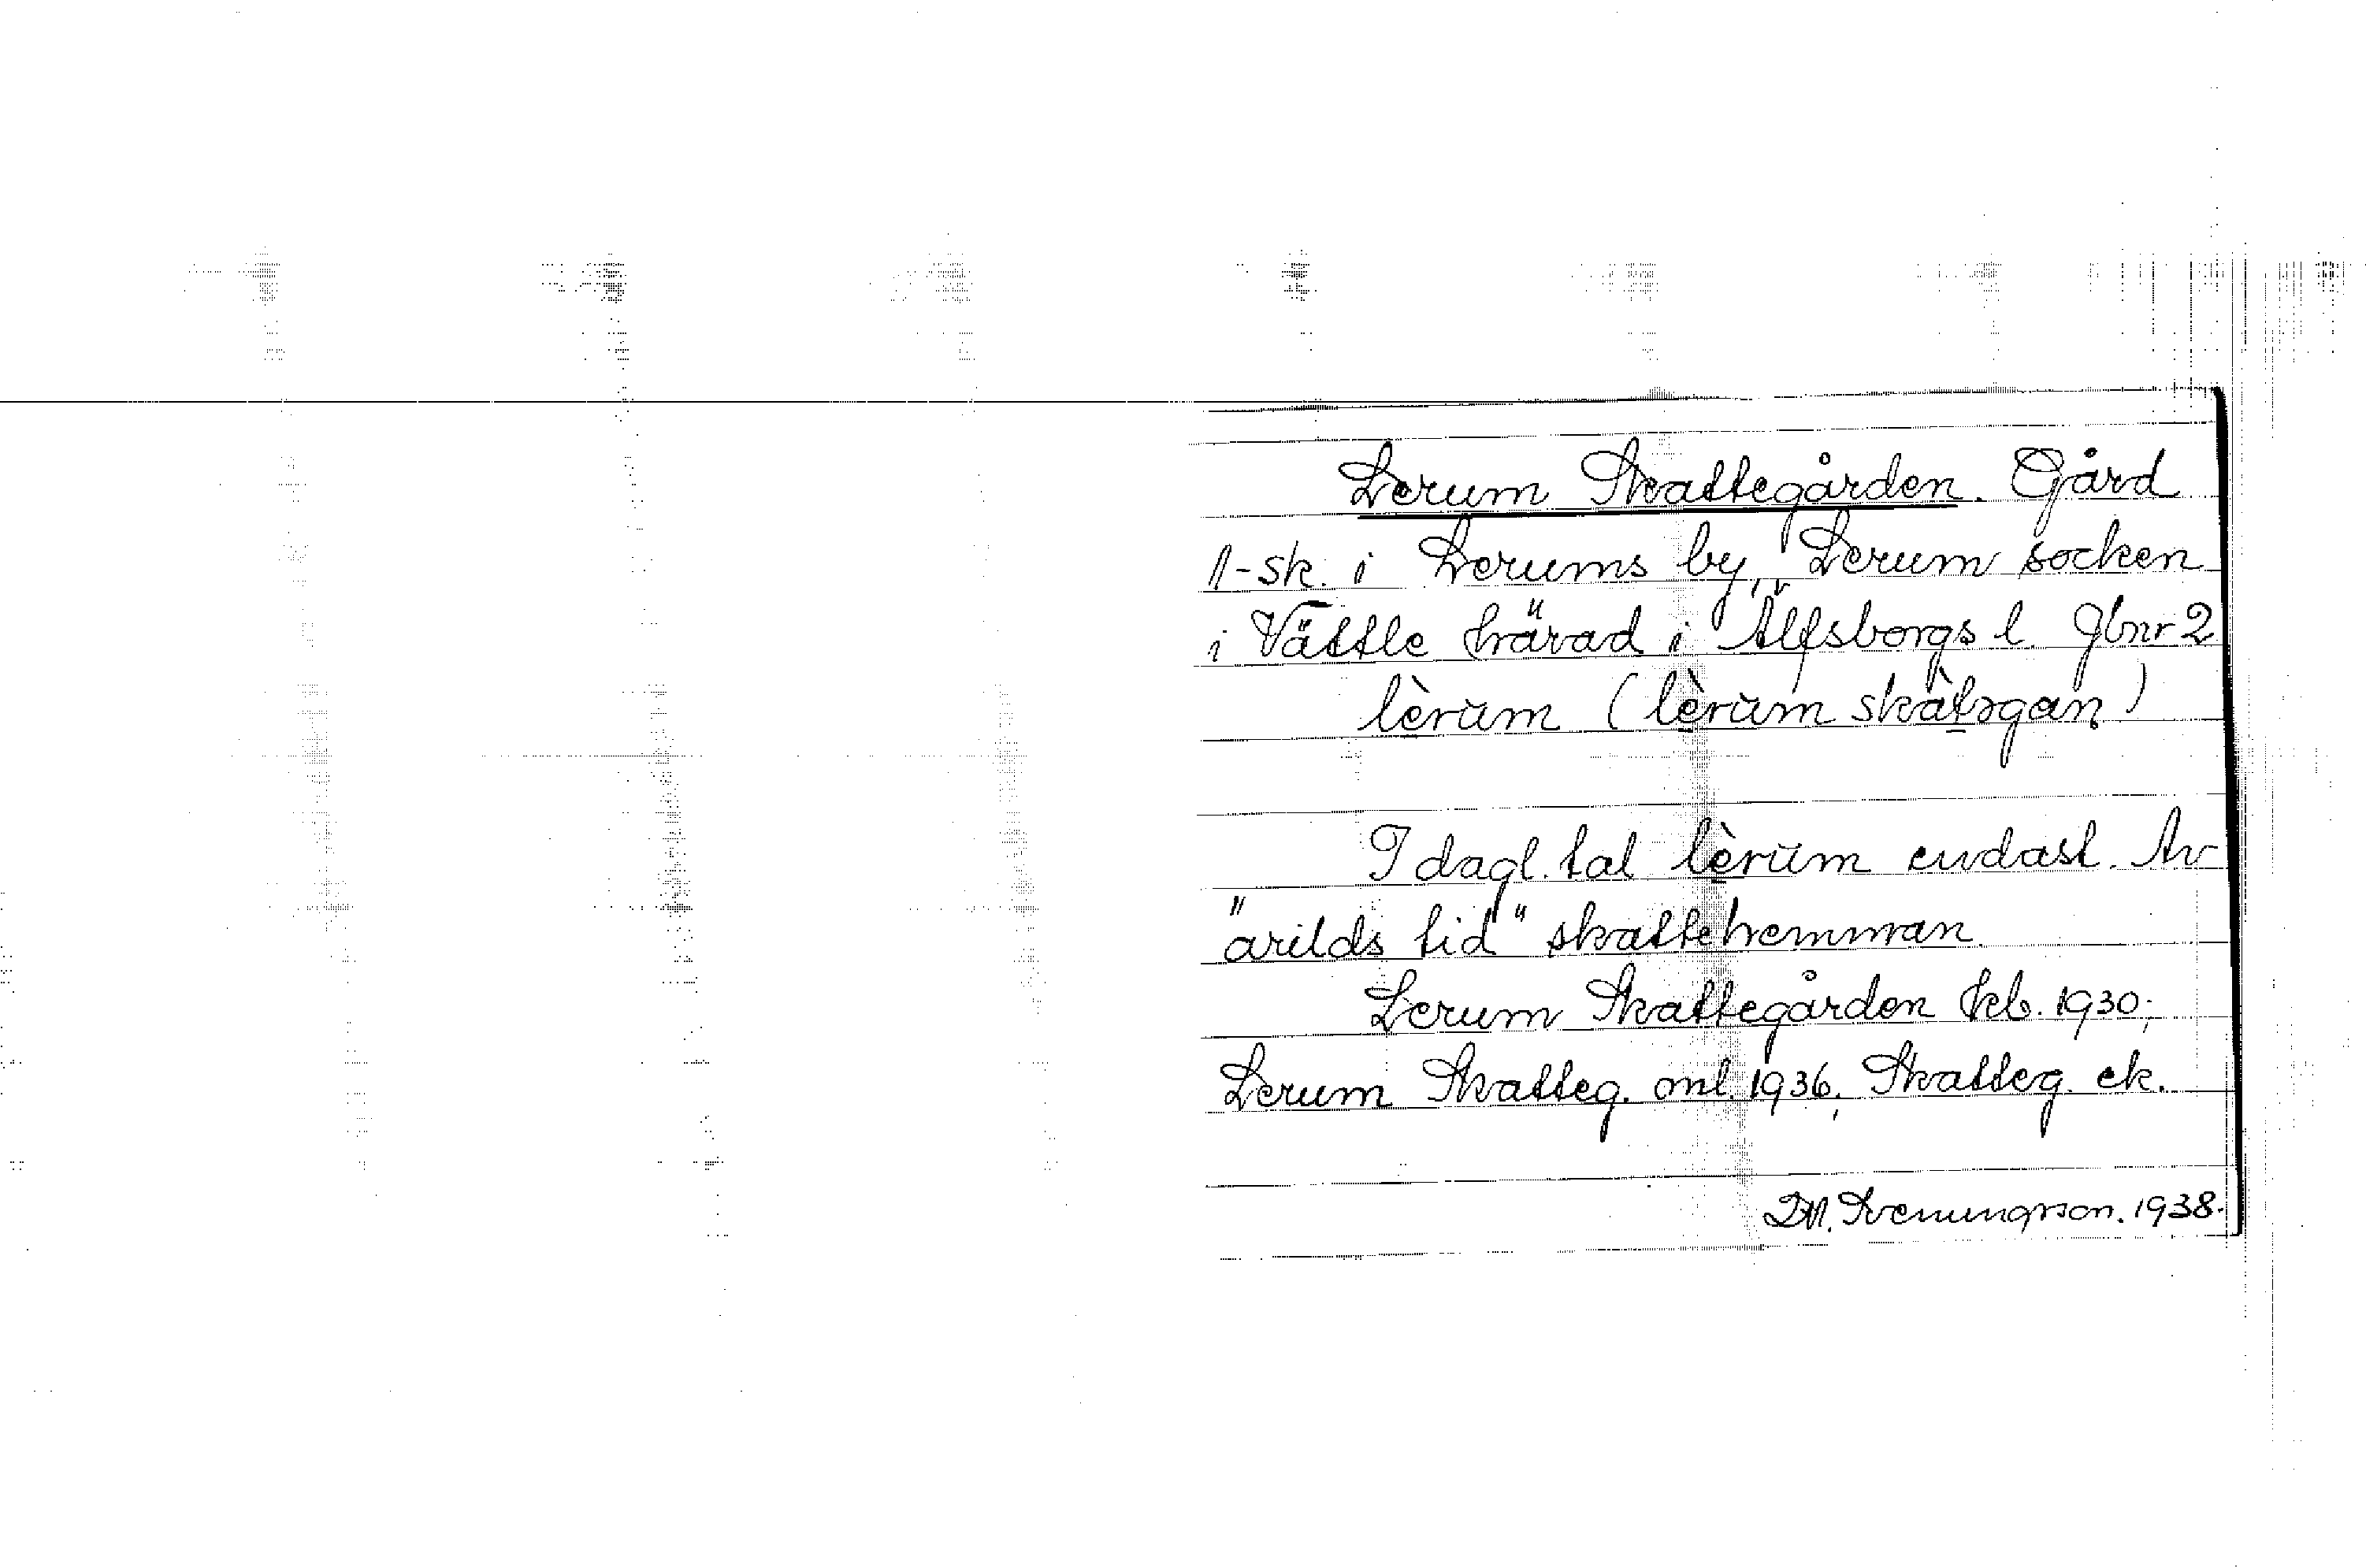 Lerum Skattegården. Gård
1-sk. i Lerums by, Lerum socken
i Vättle härad i Älfsborgs l. Gbnr 2
lèrum (lèrum skàtǝgan)
I dagl. tal lèrum endast. Av
"arilds tid" skattehemman.
Lerum Skattegården kb. 1930;
Lerum Skatteg. oml. 1936; Skatteg. ek.
M. Svenungsson. 1938.